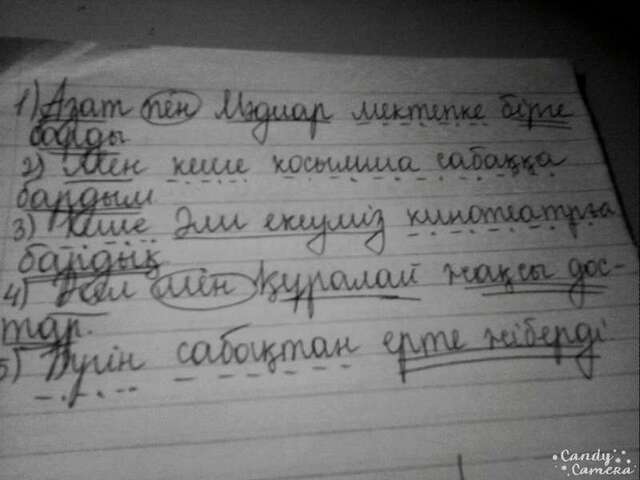 1) Азат пен Мәдиар мектепке бірге
барды
2) Мен кеше қосымша сабаққа
бардым
3) Кеше Әли екеуміз кинотеатрға
бардық
4) мен Құралай жақсы дос-
тар.
5) Бүгін сабақтан ерте жіберді
Candy
Camera